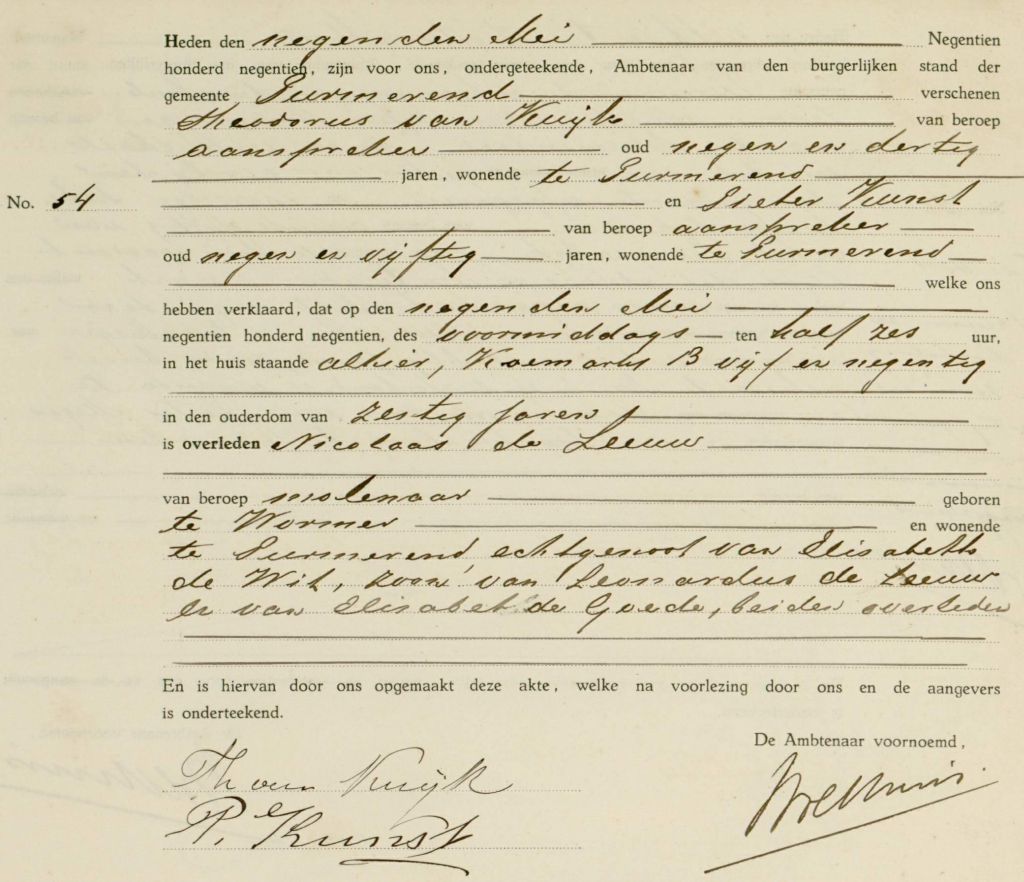 Heden den negenden Mei Negentien
honderd negentien, zijn voor ons, ondergeteekende, Ambtenaar van den burgerlijken stand der
gemeente Purmerend verschenen
Theodorus van Kuijk van beroep
aanspreker oud negen en dertig
jaren, wonende te Purmerend
No. 54 en Pieter Kunst
van beroep aanspreker
oud negen en vijftig jaren, wonende te Purmerend
welke ons
hebben verklaard, dat op den negenden Mei
negentien honderd negentien, des voormiddags ten half zes uur,
in het huis staande alhier, Koemarkt B vijf en negentig
in den ouderdom van zestig jaren
is overleden Nicolaas de Leeuw
van beroep molenaar geboren
te Wormer en wonende
te Purmerend, echtgenoot van Elisabeth
de Wit, zoon van Leonardus de Leeuw
en van Elisabet de Goede, beiden overleden
En is hiervan door ons opgemaakt deze akte, welke na voorlezing door ons en de aangevers
is onderteekend.
De Ambtenaar voornoemd,
Th van Kuijk
P. Kunst